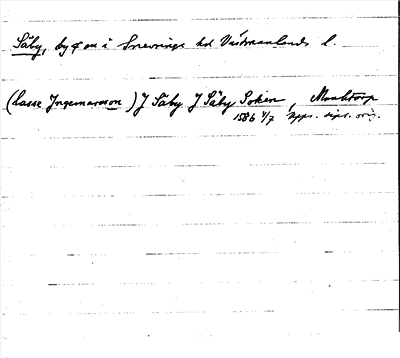 Säby, by o sn i Snevringe hd Västmanlands l.
(Lasse Ingemarsson) J Säby J Säby Soken, Munktorp
1586 7/7 upps. dipl. orig.